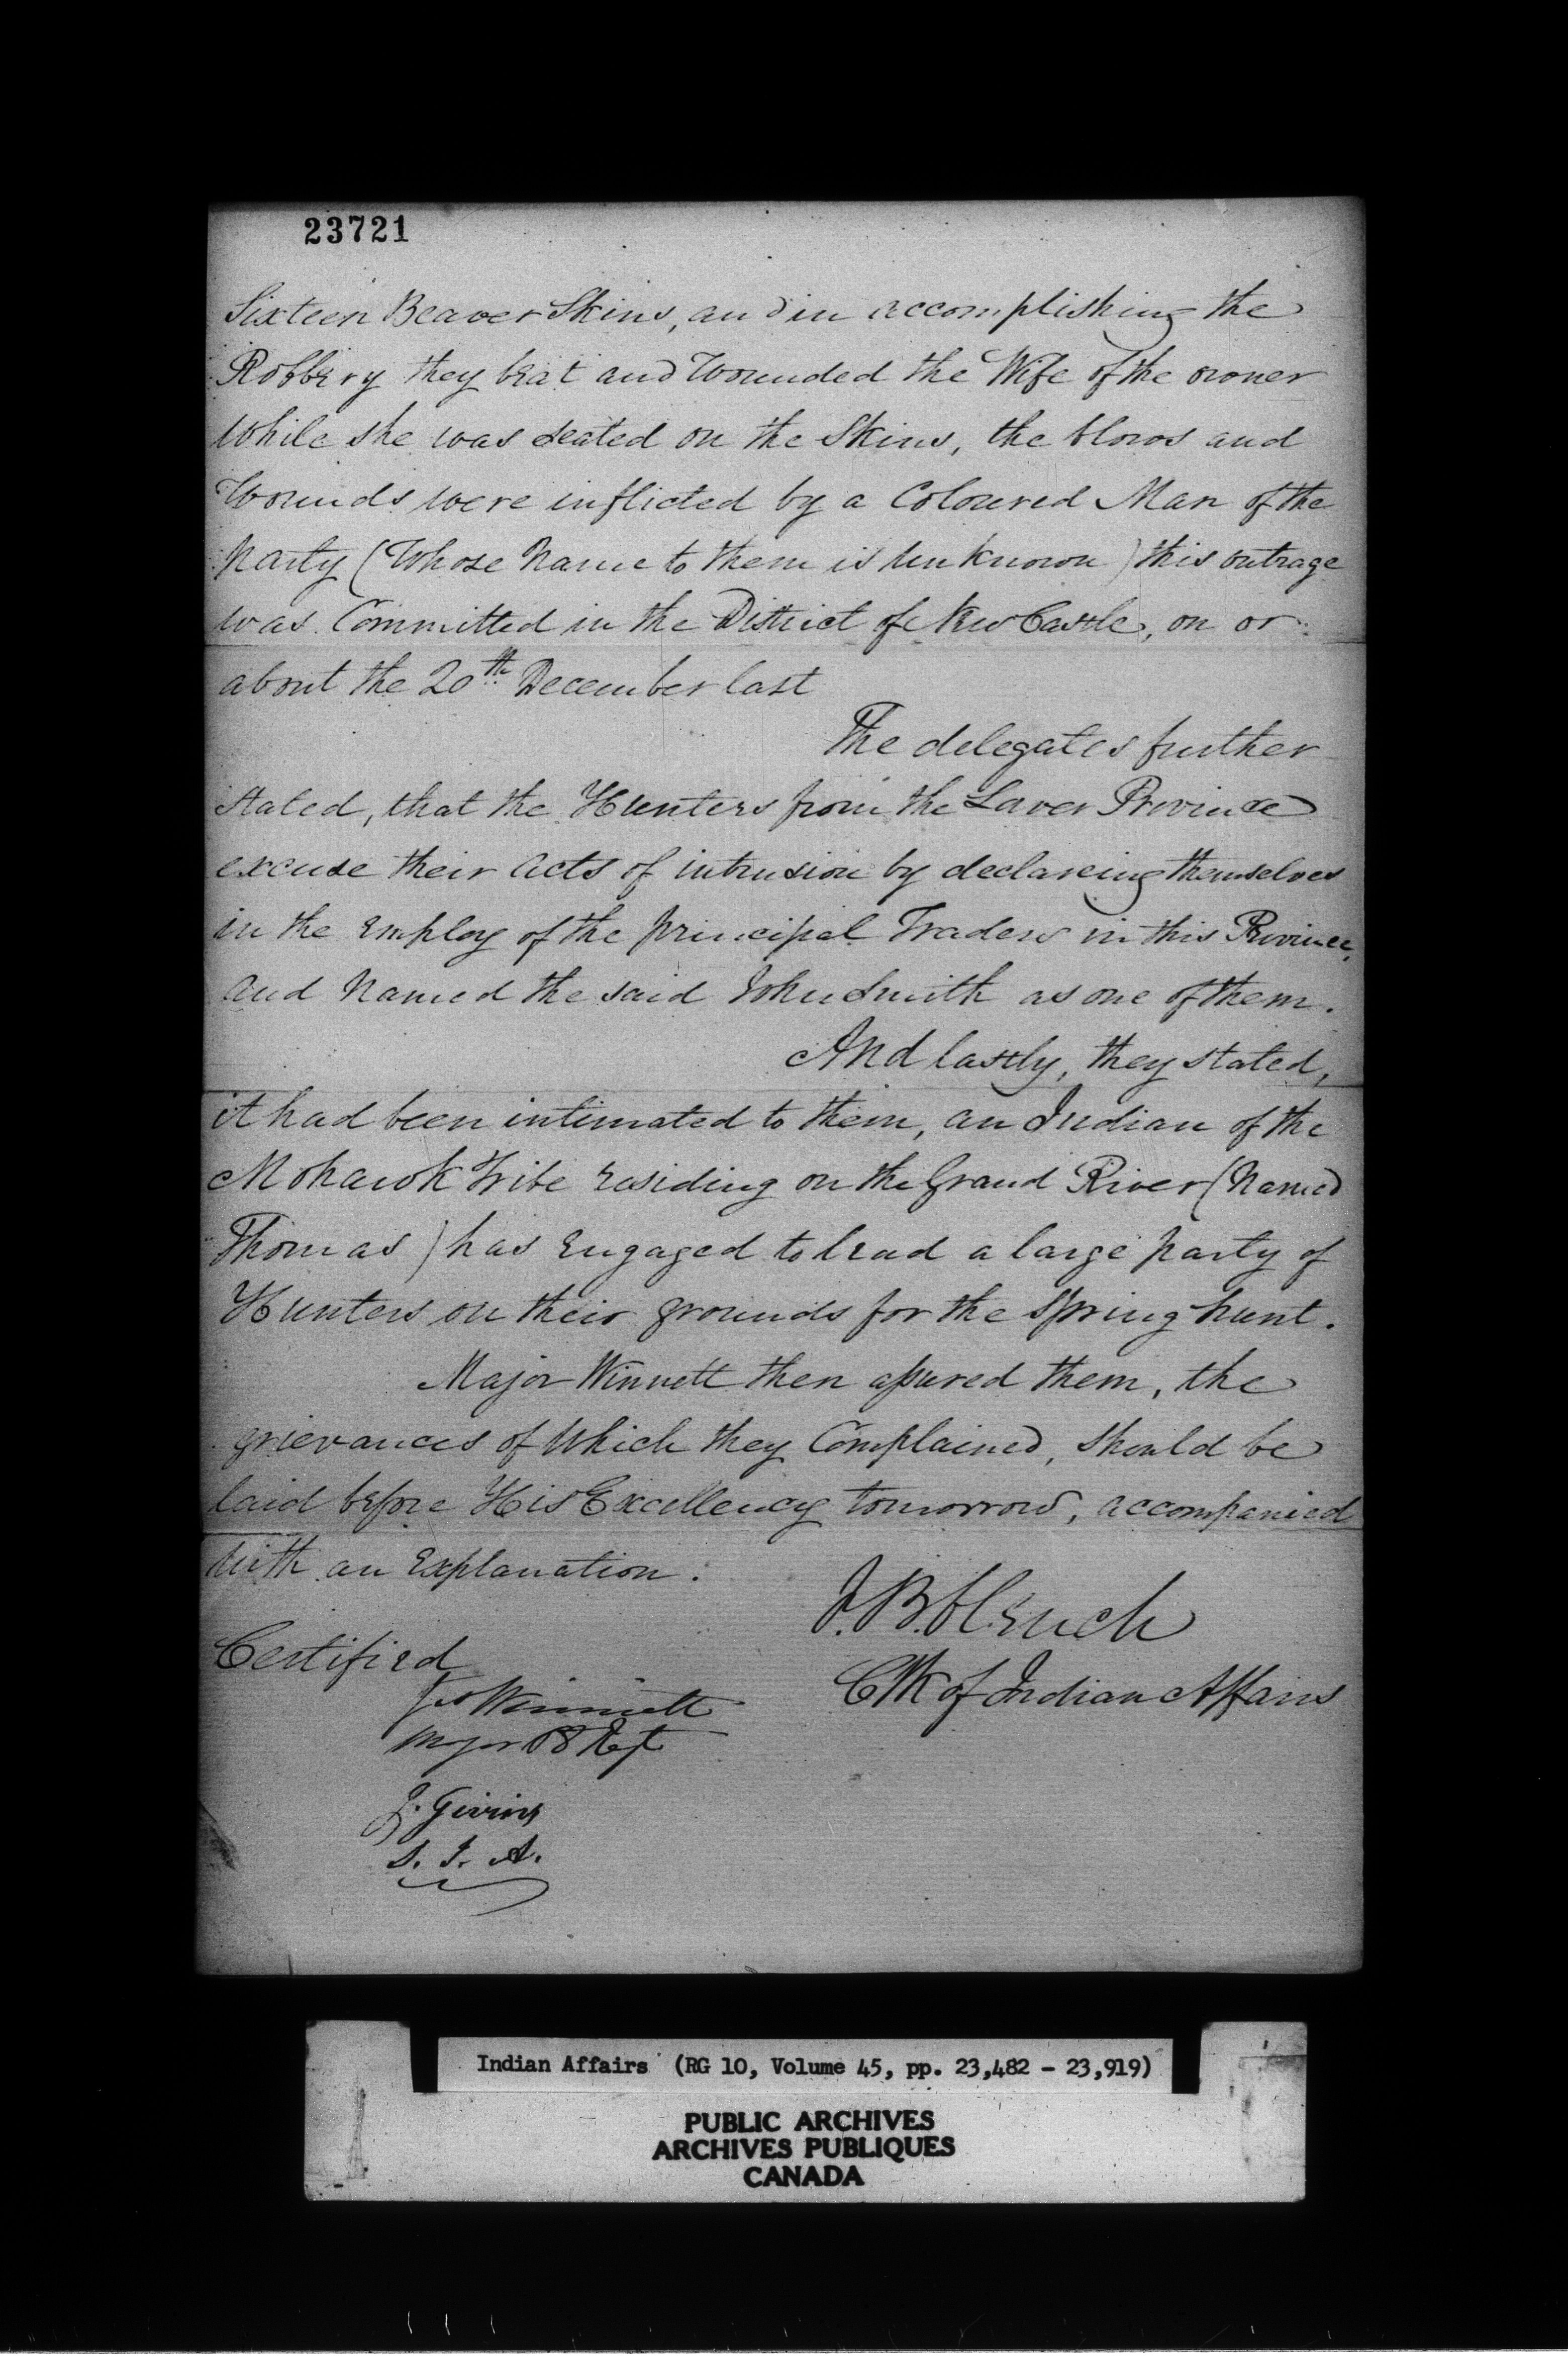 23721
Sixteen Beaver Skins, and in accomplishing the
Robbery they beat and Wounded the Wife of the owner
While she was seated on the Skins, the blows and
Wounds were inflicted by a Coloured Man of the
party (Whose Name to them is unknown) this outrage
was Committed in the District of New Castle, on or
about the 20th December last
The delegates further
stated, that the Hunters from the Lower Province
excuse their acts of intrusion by declareing themselves
in the employ of the principal Traders in this Province,
and Named the said John Smith as one of them.
And lastly, they stated,
it had been intimated to them, an Indian of the
Mohawk Tribe residing on the Grand River (Named
Thomas) has engaged to lead a large party of
Hunters on their grounds for the spring hunt.
Major Winnett then assured them, the
grievances of Which they Complained, should be
laid before His Excellency tomorrow, accompanied
with an Explanation.
J. B. Clench
Clk of Indian Affairs
Certified
Jas Winniett
Major 68 Regt
J. Givins
S. I. A.
Indian Affairs (RG 10, Volume 45, pp. 23,482 - 23,919)
PUBLIC ARCHIVES
ARCHIVES PUBLIQUES
CANADA